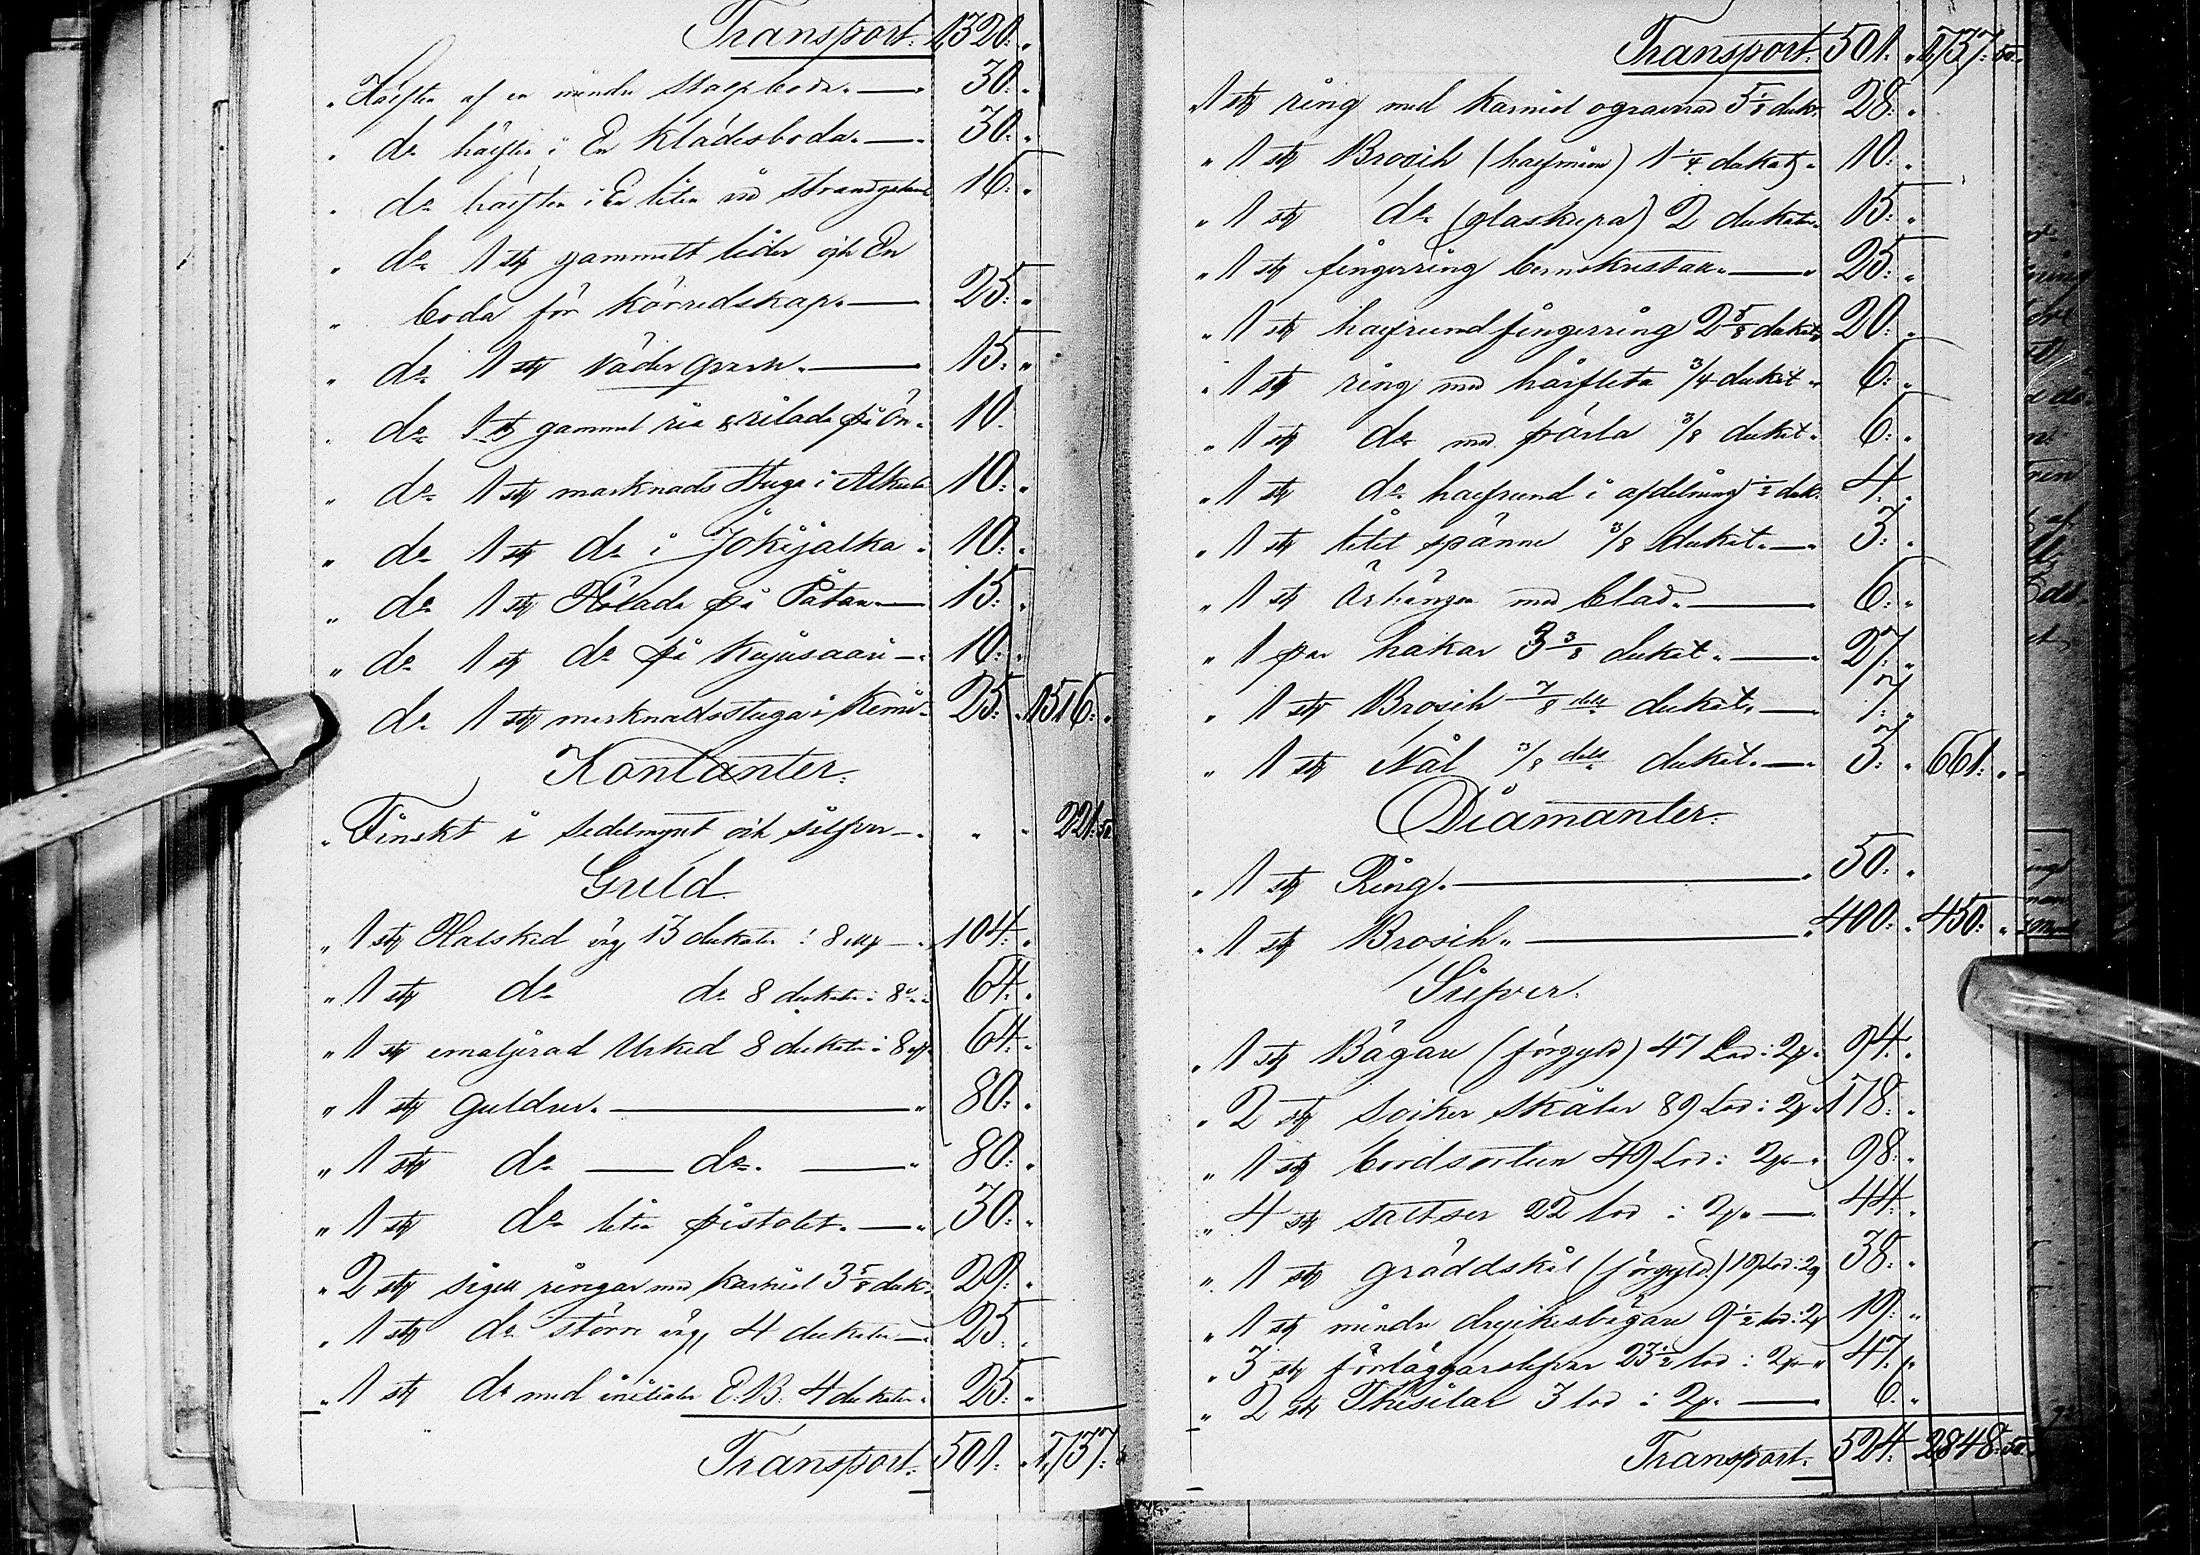 Transport. 1320. "
" Hälften af en mindre Stolpboda. — 30: "
" do hälften i En klädesboda. — 30: "
" do hälften i En liten vid Strandgatan 16: "
" do 1 st gammalt lider och En
" boda för körredskap. — 25: "
" do 1 st Väderqvarn. — 15: "
" do 1 st gammal ria & rilada på Ön. 10.
" do 1 st marknads Stuga i 10: "
" do 1 st do i Jokijalka 10: "
" do 1 st Hölada på Påtan — 15: "
" do 1 st do på Kujusaari — 10: "
" do 1 st marknadsstuga i Kemi. 25: " 1516: "
Kontanter.
" Finskt i sedelmynt och silfver — " " 221: 50
Guld
" 1 st Halsked väg. 13 dukater i 8 — 104: "
" 1 st do do 8 dukater i 8 " 64: "
" 1 st emaljerad Urked 8 dukater i 8 64: "
" 1 st guldur. — 80: "
" 1 st do — do. — 80: "
" 1 st do liten pistolet. — 30: "
" 2 st sigill ringar med karniol 3 5/8 duk. 29: "
" 1 st do större väg. 4 dukater — 25 "
" 1 st do med initialer E.B. 4 dukater. 25: "
Transport. 501. " 1,737:
Transport. 501. " 1,737: 50.
" 1 st ring med karniol ograverad 5 1/8 duk. 28: "
" 1 st Brosch (halfmåne) 1 1/4 dukat. 10: "
" 1 st do (glaskupa) 2 dukater. 15: "
" 1 st fingerring — 25: "
" 1 st halfrund fingerring 2 5/8 dukat. 20: "
" 1 st ring med hårfläta 3/4 dukat " 6: "
" 1 st do med pärla 3/8 dukat. 6: "
" 1 st do halfrund i afdelning 1/2 duk. 4. "
" 1 st litet spänne 3/8 dukat. — 3: "
" 1 st örhängen med blad. — 6: "
" 1 par hakar 3 3/8 dukat. — 27: "
" 1 st Brosch 7/8 dels dukat. — 7: "
" 1 st Nål 3/8 dels dukat. — 3: " 661: "
Diamanter.
" 1 st Ring. — 50: "
" 1 st Brosch. — 400: " 450: "
Silfver.
" 1 st Bägare (förgyld) 47 Lod i 2 94. "
" 2 st socker skålar 89 Lod i 2 178: "
" 1 st bordsorten 49 Lod i 2 — 98: "
" 4 st saltser 22 lod i 2 — 44: "
" 1 st gräddskål (förgyld) 19 Lod i 2 38: "
" 1 st mindre dryckesbägare 9 1/2 lod i 2 19: "
" 3 st förläggarslefvar 23 1/2 lod i 2 " 47: "
" 2 st Thesilar 3 lod i 2 — 6. "
Transport. 524: 2848: 50.